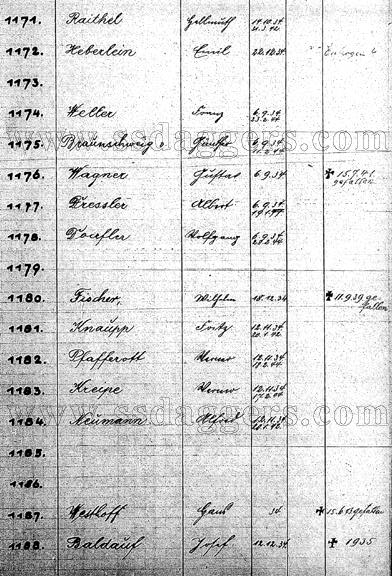 1171. Raithel Hellmuth 19.10.34
21.3.42.
1172. Heberlein Emil 22.12.34
1173.
1174. Weller Franz 6.9.34
23.2.44
www.ssdaggers.com
1175. Braunschweig Günther 6.9.34
11.2.44
1176. Wagner Gustav 6.9.34 ✝ 15.7.41.
gefallen
1177. Dressler Albert 6.9.34
1178. Doerfler Wolfgang 6.9.34
23.2.44
1179.
1180. Fischer, Wilhelm 18.12.34 ✝ 11.9.39 ge-
fallen
1181. Knaupp Fritz 12.11.34
20.1.42.
1182. Pfafferott Werner 12.11.34
17.2.44
1183. Kreipe Werner 12.11.34
17.2.44
www.ssdaggers.com
1184. Neumann Alfred 12.11.34
21.1.42.
1185.
1186.
1187. Westhoff Hans 34 ✝ 15.6.43 gefallen
1188. Baldauf Josef 12.12.34 ✝ 1935